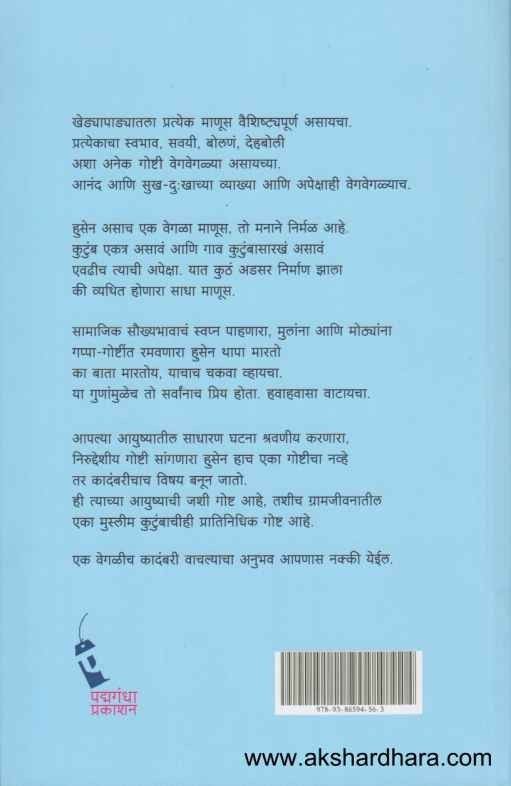 खेड्यापाड्यातला प्रत्येक माणूस वैशिष्ट्यपूर्ण असायचा.
प्रत्येकाचा स्वभाव, सवयी, बोलणं, देहबोली
अशा अनेक गोष्टी वेगवेगळ्या असायच्या.
आनंद आणि सुख-दुःखाच्या व्याख्या आणि अपेक्षाही वेगवेगळ्याच.
हुसेन असाच एक वेगळा माणूस, तो मनाने निर्मळ आहे.
कुटुंब एकत्र असावं आणि गाव कुटुंबासारखं असावं
एवढीच त्याची अपेक्षा. यात कुठं अडसर निर्माण झाला
की व्यथित होणारा साधा माणूस.
सामाजिक सौख्यभावाचं स्वप्न पाहणारा, मुलांना आणि मोठ्यांना
गप्पा-गोष्टींत रमवणारा हुसेन थापा मारतो
का बाता मारतोय, याचाच चकवा व्हायचा.
या गुणांमुळेच तो सर्वांनाच प्रिय होता. हवाहवासा वाटायचा.
आपल्या आयुष्यातील साधारण घटना श्रवणीय करणारा,
निरुद्देशीय गोष्टी सांगणारा हुसेन हाच एका गोष्टीचा नव्हे
तर कादंबरीचाच विषय बनून जातो.
ही त्याच्या आयुष्याची जशी गोष्ट आहे, तशीच ग्रामजीवनातील
एका मुस्लीम कुटुंबाचीही प्रातिनिधिक गोष्ट आहे.
एक वेगळीच कादंबरी वाचल्याचा अनुभव आपणास नक्की येईल.
पद्मगंधा
प्रकाशन
978-93-86594-56-3
www.akshardhara.com